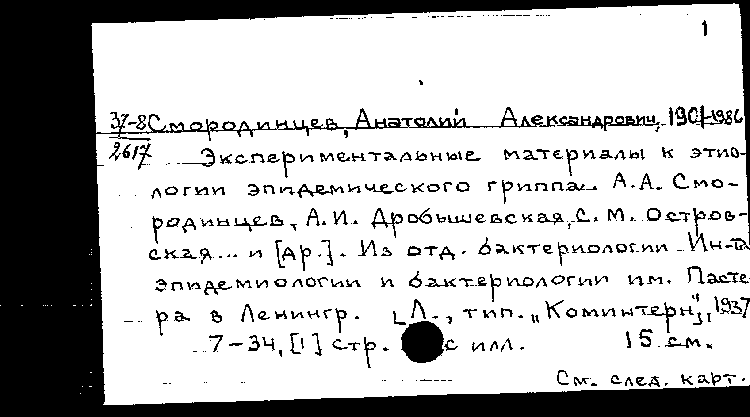 1
37-8 Смородинцев, Анатолий Александрович, 1901-1986
2617 Экспериментальные материалы к этио-
логии эпидемического гриппа. А.А. Смо-
родинцев, А.И. Дробышевская, С.М. Остров-
ская... и [др.]. Из отд. бактериологии Ин-та
эпидемиологии и бактериологии им. Пасте-
ра в Ленингр. [Л., тип. „Коминтерн"], 1937
7-34, [1] стр. с илл. 15 см.
См. след. карт.